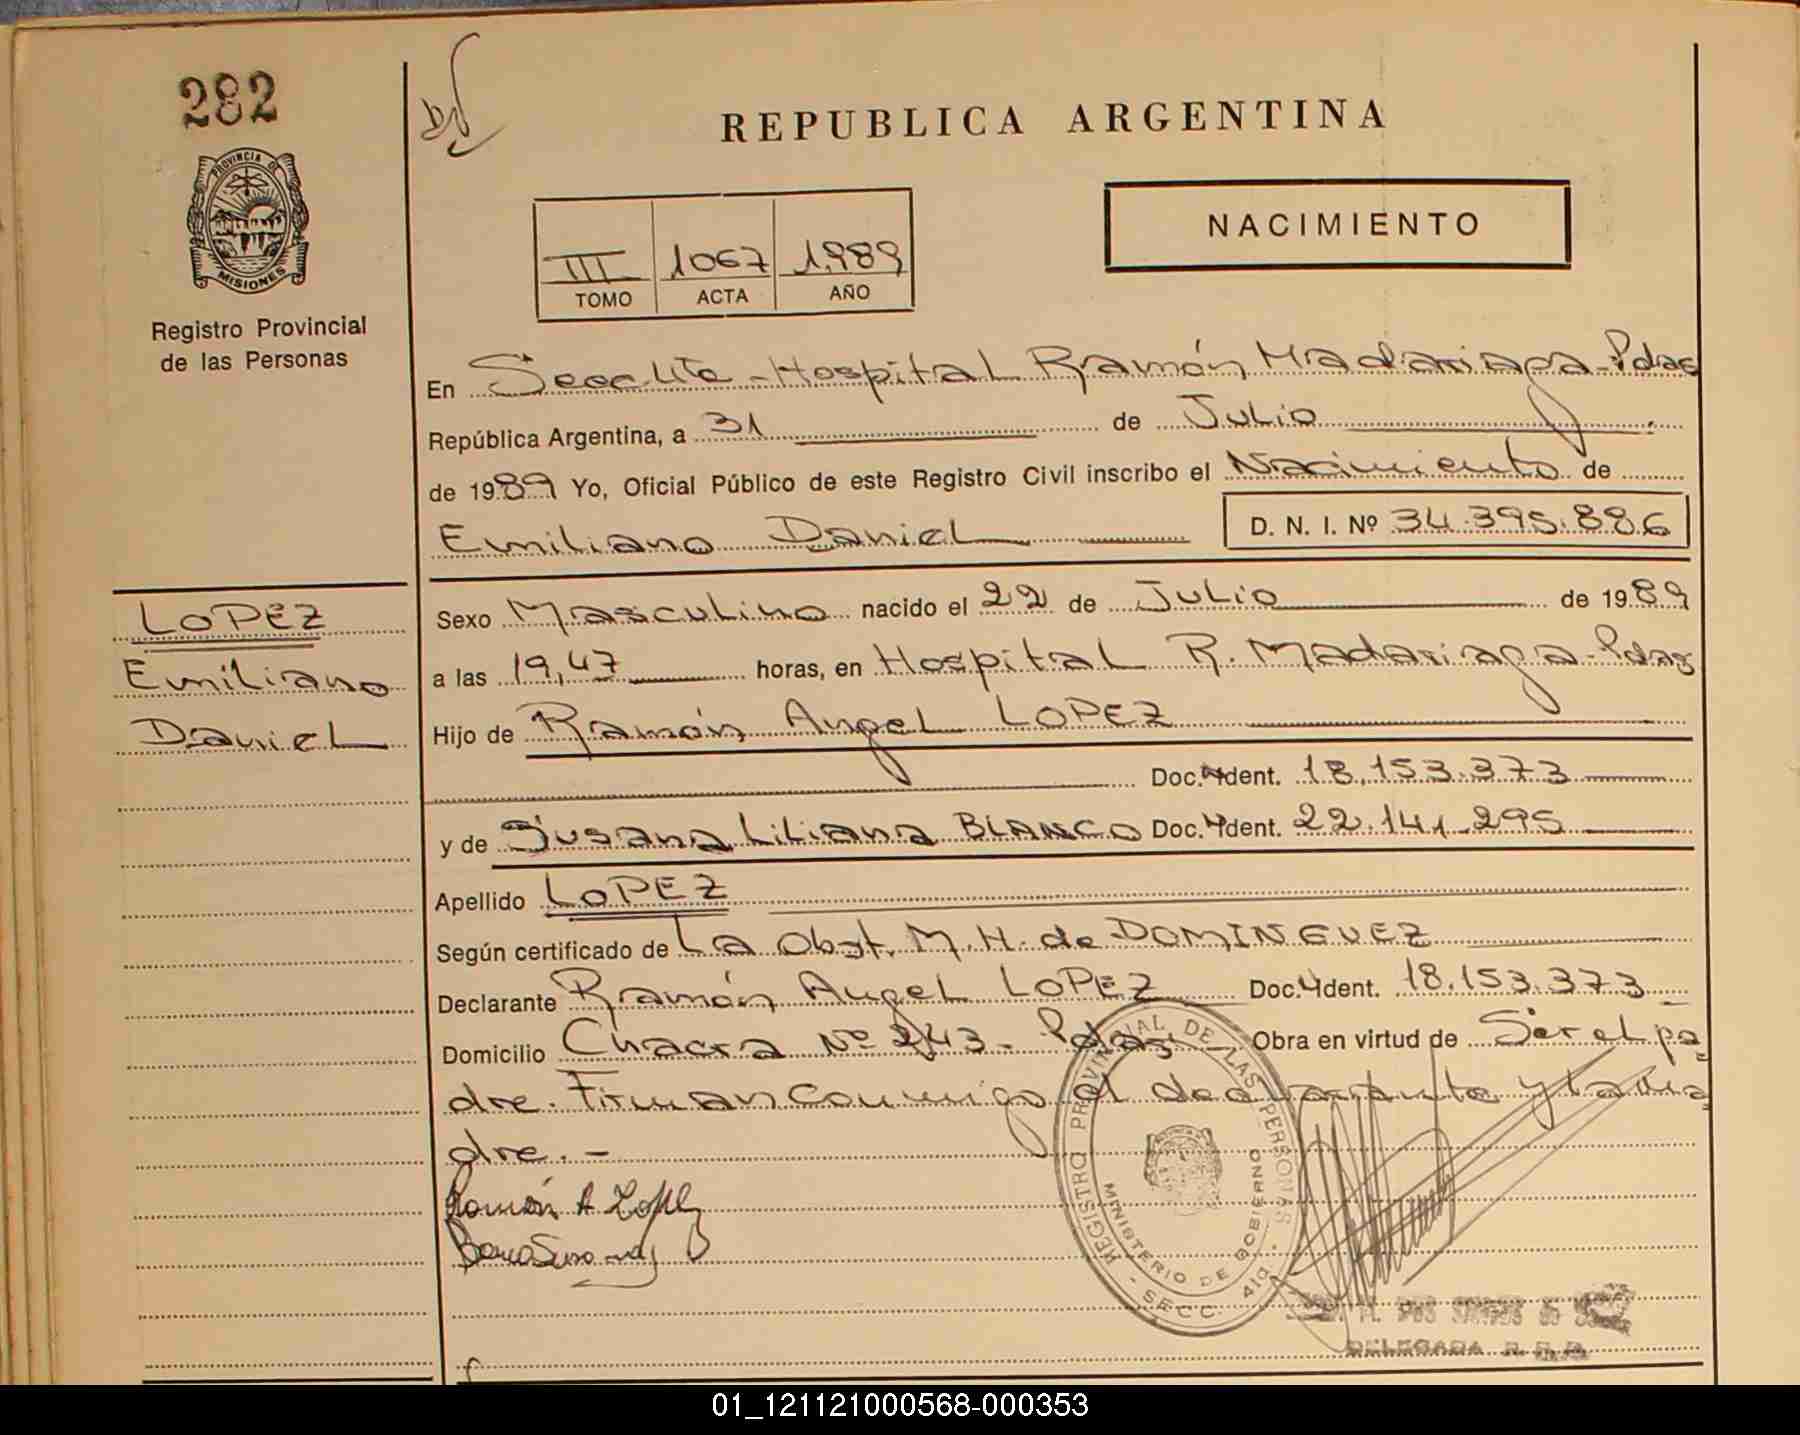 282
REPUBLICA ARGENTINA
PROVINCIA DE
MISIONES
Registro Provincial
de las Personas
III 1067 1.989
TOMO ACTA AÑO
NACIMIENTO
En Secc 4ta - Hospital Ramón Madariaga - Pdas
República Argentina, a 31 de Julio
de 1989 Yo, Oficial Público de este Registro Civil inscribo el Nacimiento de
Emiliano Daniel D. N. I. Nº 34.395.886
LOPEZ
Emiliano
Daniel
Sexo Masculino nacido el 22 de Julio de 1989
a las 19,47 horas, en Hospital R. Madariaga - Pdas
Hijo de Ramón Angel LOPEZ
Doc. Ident. 18.153.373
y de Susana Liliana BLANCO Doc. Ident. 22.141.295
Apellido LOPEZ
Según certificado de La Obst. M. H. de DOMINGUEZ
Declarante Ramón Angel LOPEZ Doc. Ident. 18.153.373
Domicilio Chacra Nº 243 - Pdas - Obra en virtud de Ser el pa
dre. Firman conmigo el declarante y la ma
dre. -
Ramón A Lopez
REGISTRO PROVINCIAL DE LAS PERSONAS
MINISTERIO DE GOBIERNO
- SECC. 4ta -
DELEGADA
01_121121000568-000353